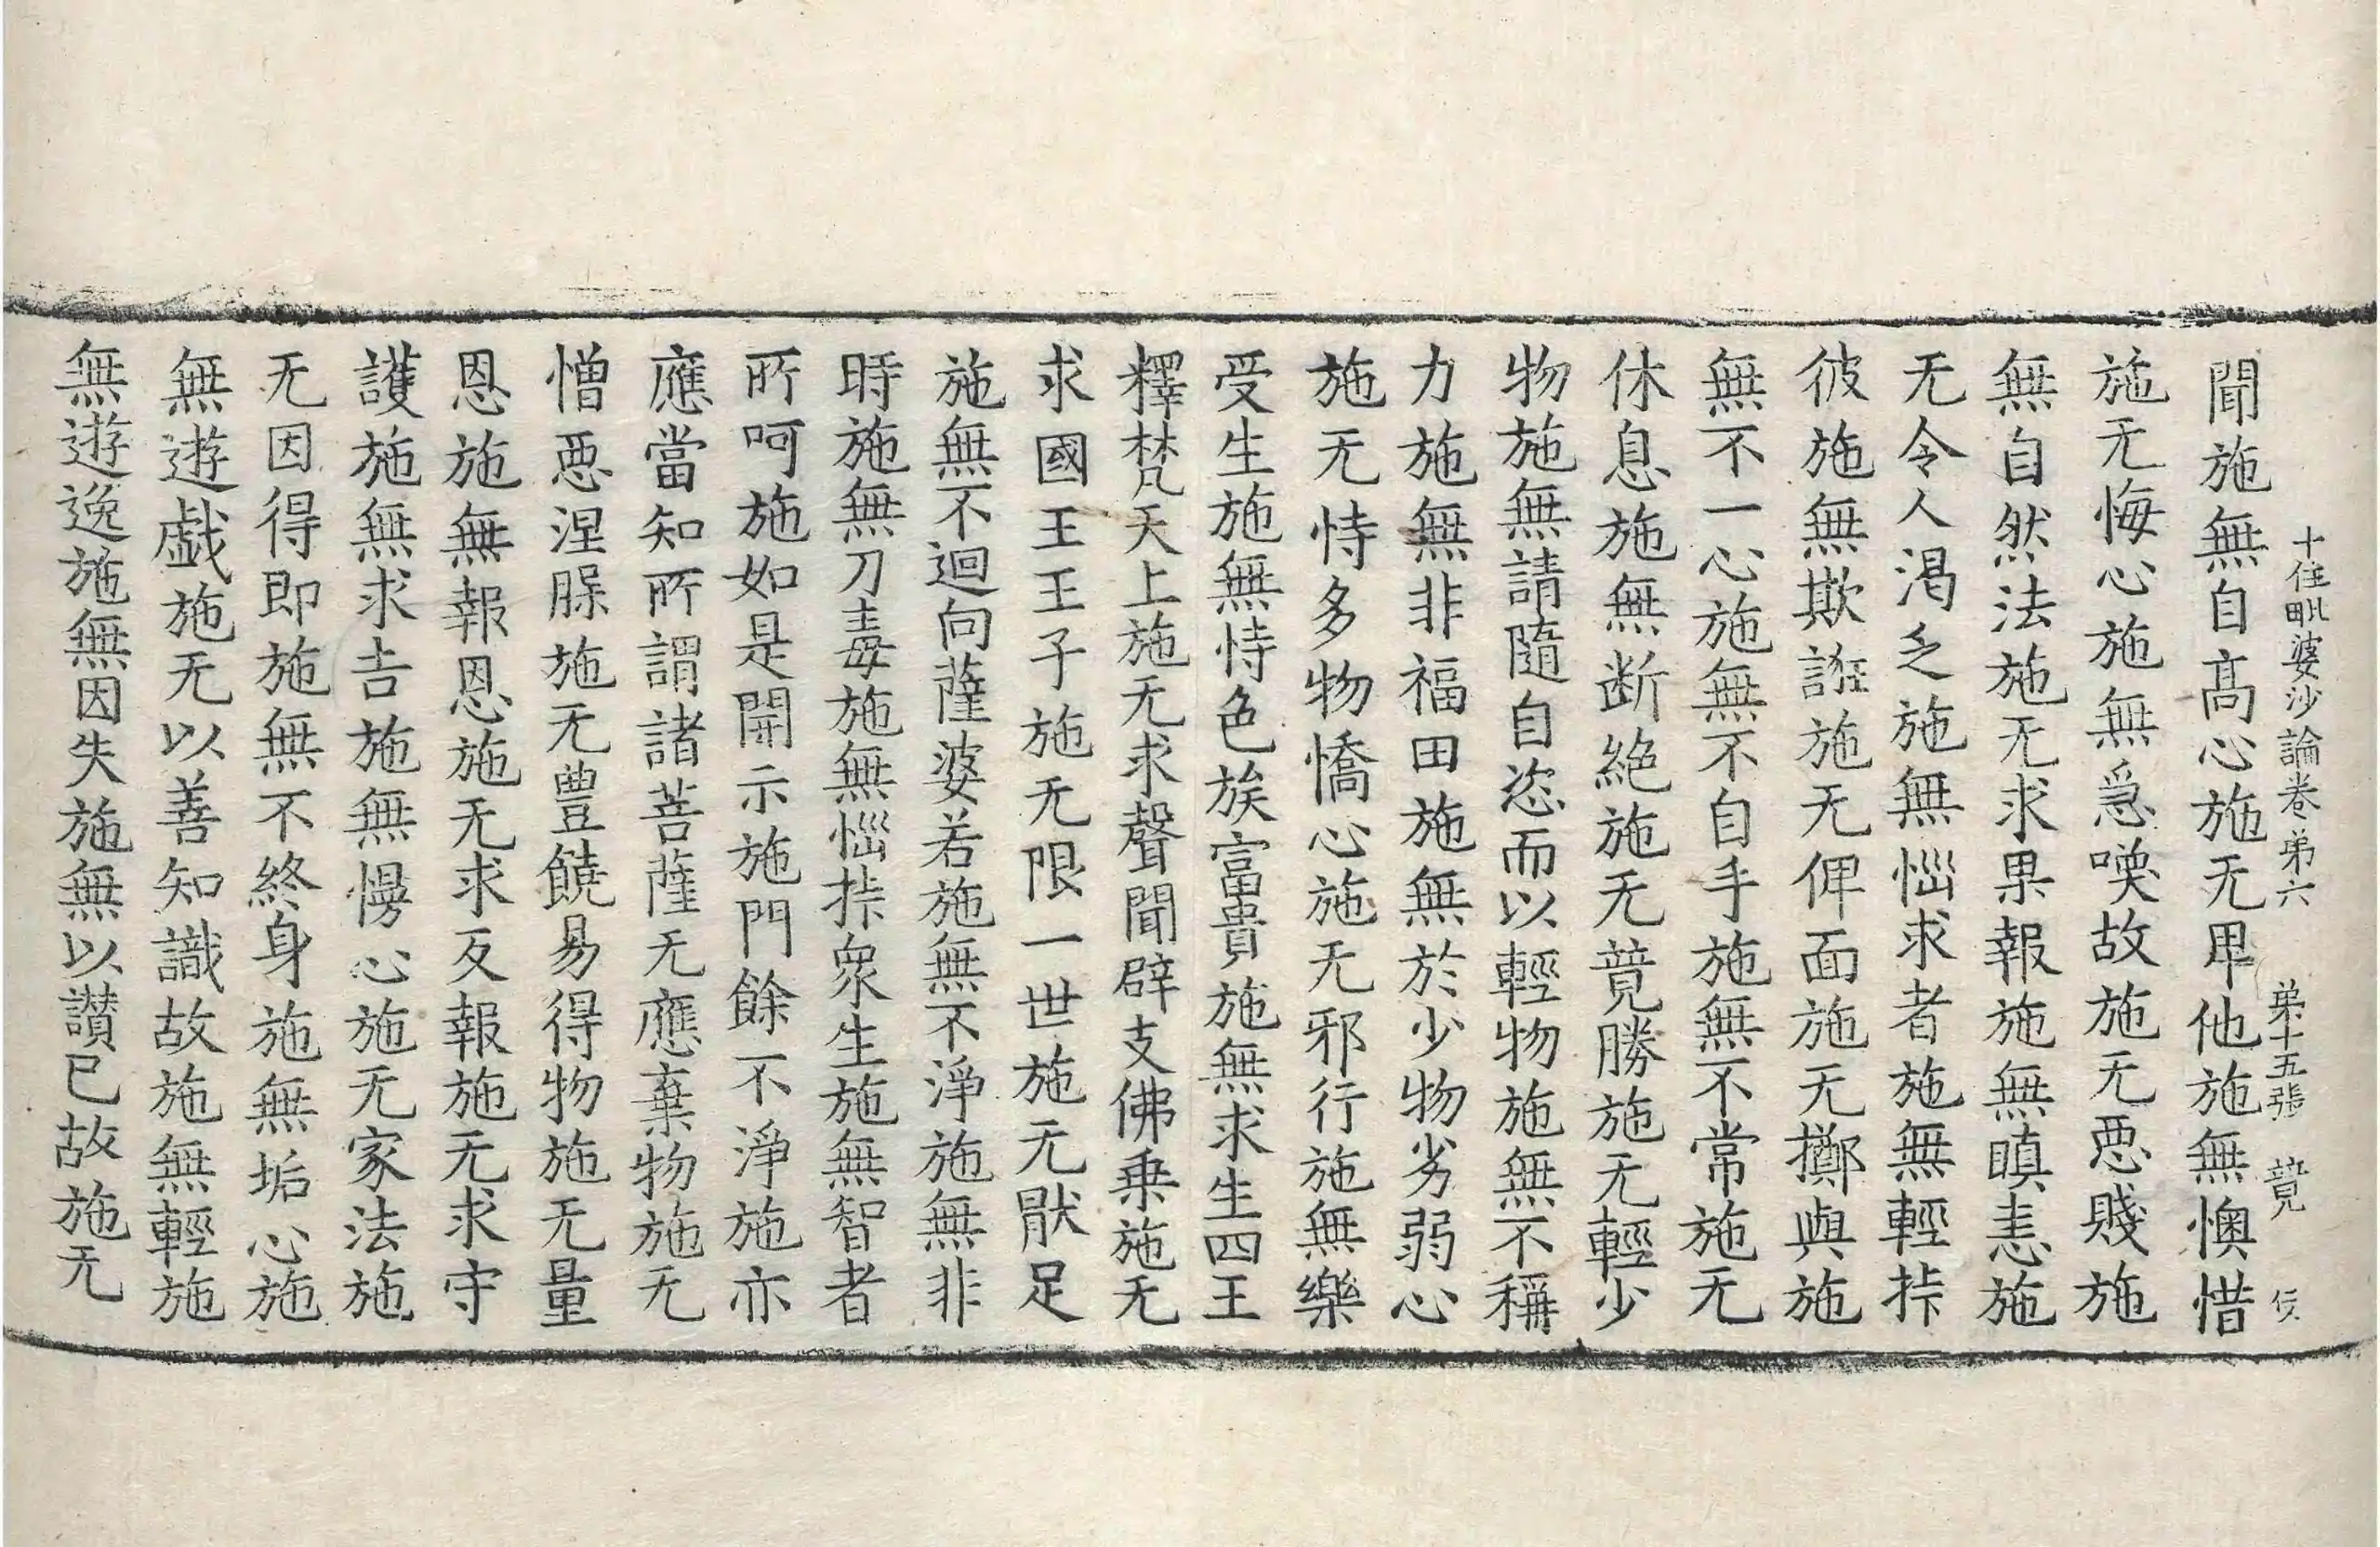 十住毗婆沙論卷弟六　弟十五張　竟
聞施無自髙心施无卑他施無懊惜
施无悔心施無急喚故施无惡賤施
無自然法施无求果報施無瞋恚施
无令人渴乏施無惱求者施無輕挊
彼施無欺誑施无俾面施无擲與施
無不一心施無不自手施無不常施无
休息施無断絶施无竟勝施无輕少
物施無請隨自恣而以輕物施無不稱
力施無非福田施無於少物劣弱心
施无恃多物憍心施无邪行施無樂
受生施無恃色族富貴施無求生四王
釋梵天上施无求聲聞辟支佛乗施无
求國王王子施无限一世施无猒足
施無不迴向薩婆若施無不淨施無非
時施無刀毒施無惱挊衆生施無智者
所呵施如是開示施門餘不淨施亦
應當知所謂諸菩薩无應棄物施无
憎惡涅脲施无豊饒易得物施无量
恩施無報恩施无求反報施无求守
護施無求吉施無慢心施无家法施
无因得即施無不終身施無垢心施
無遊戯施无以善知識故施無輕施
無遊逸施無因失施無以讃已故施无